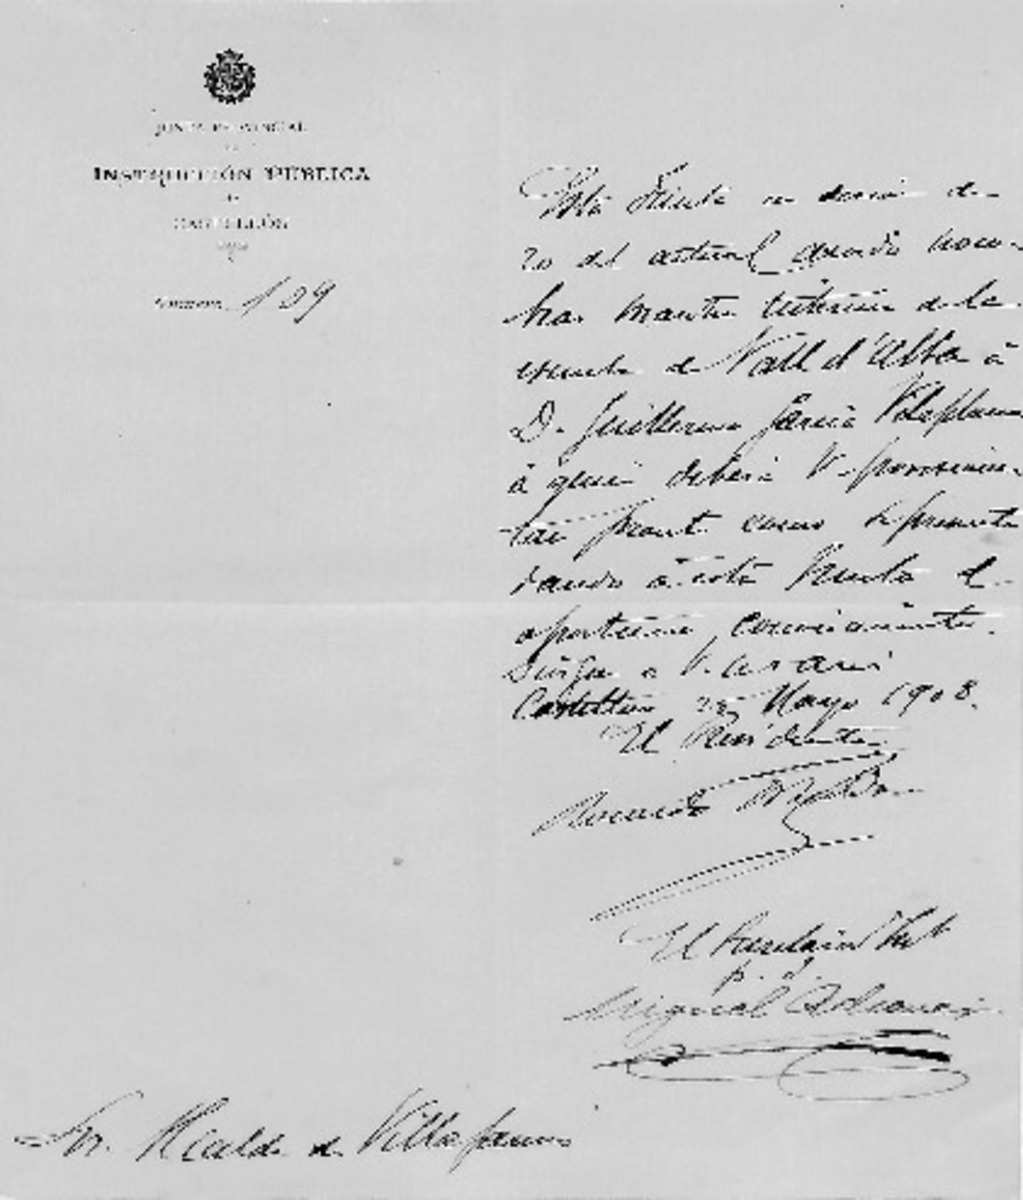 JUNTA PROVINCIAL
DE
INSTRUCCIÓN PÚBLICA
DE
CASTELLÓN
Número 109
Esta Junta en sesión de
20 del actual acordó nom-
brar maestro interino de la
escuela de Vall d'Alba á
D. Guillermo García Vilaplana
á quien deberá V. posesionar
tan pronto como se presente
dando á esta Junta el
oportuno conocimiento.
Dios gue a V. m. as
Castellón 22 Mayo 1908.
El Presidente
El Secretario
p. I.
Miguel
Sr. Alcalde de Villafamés